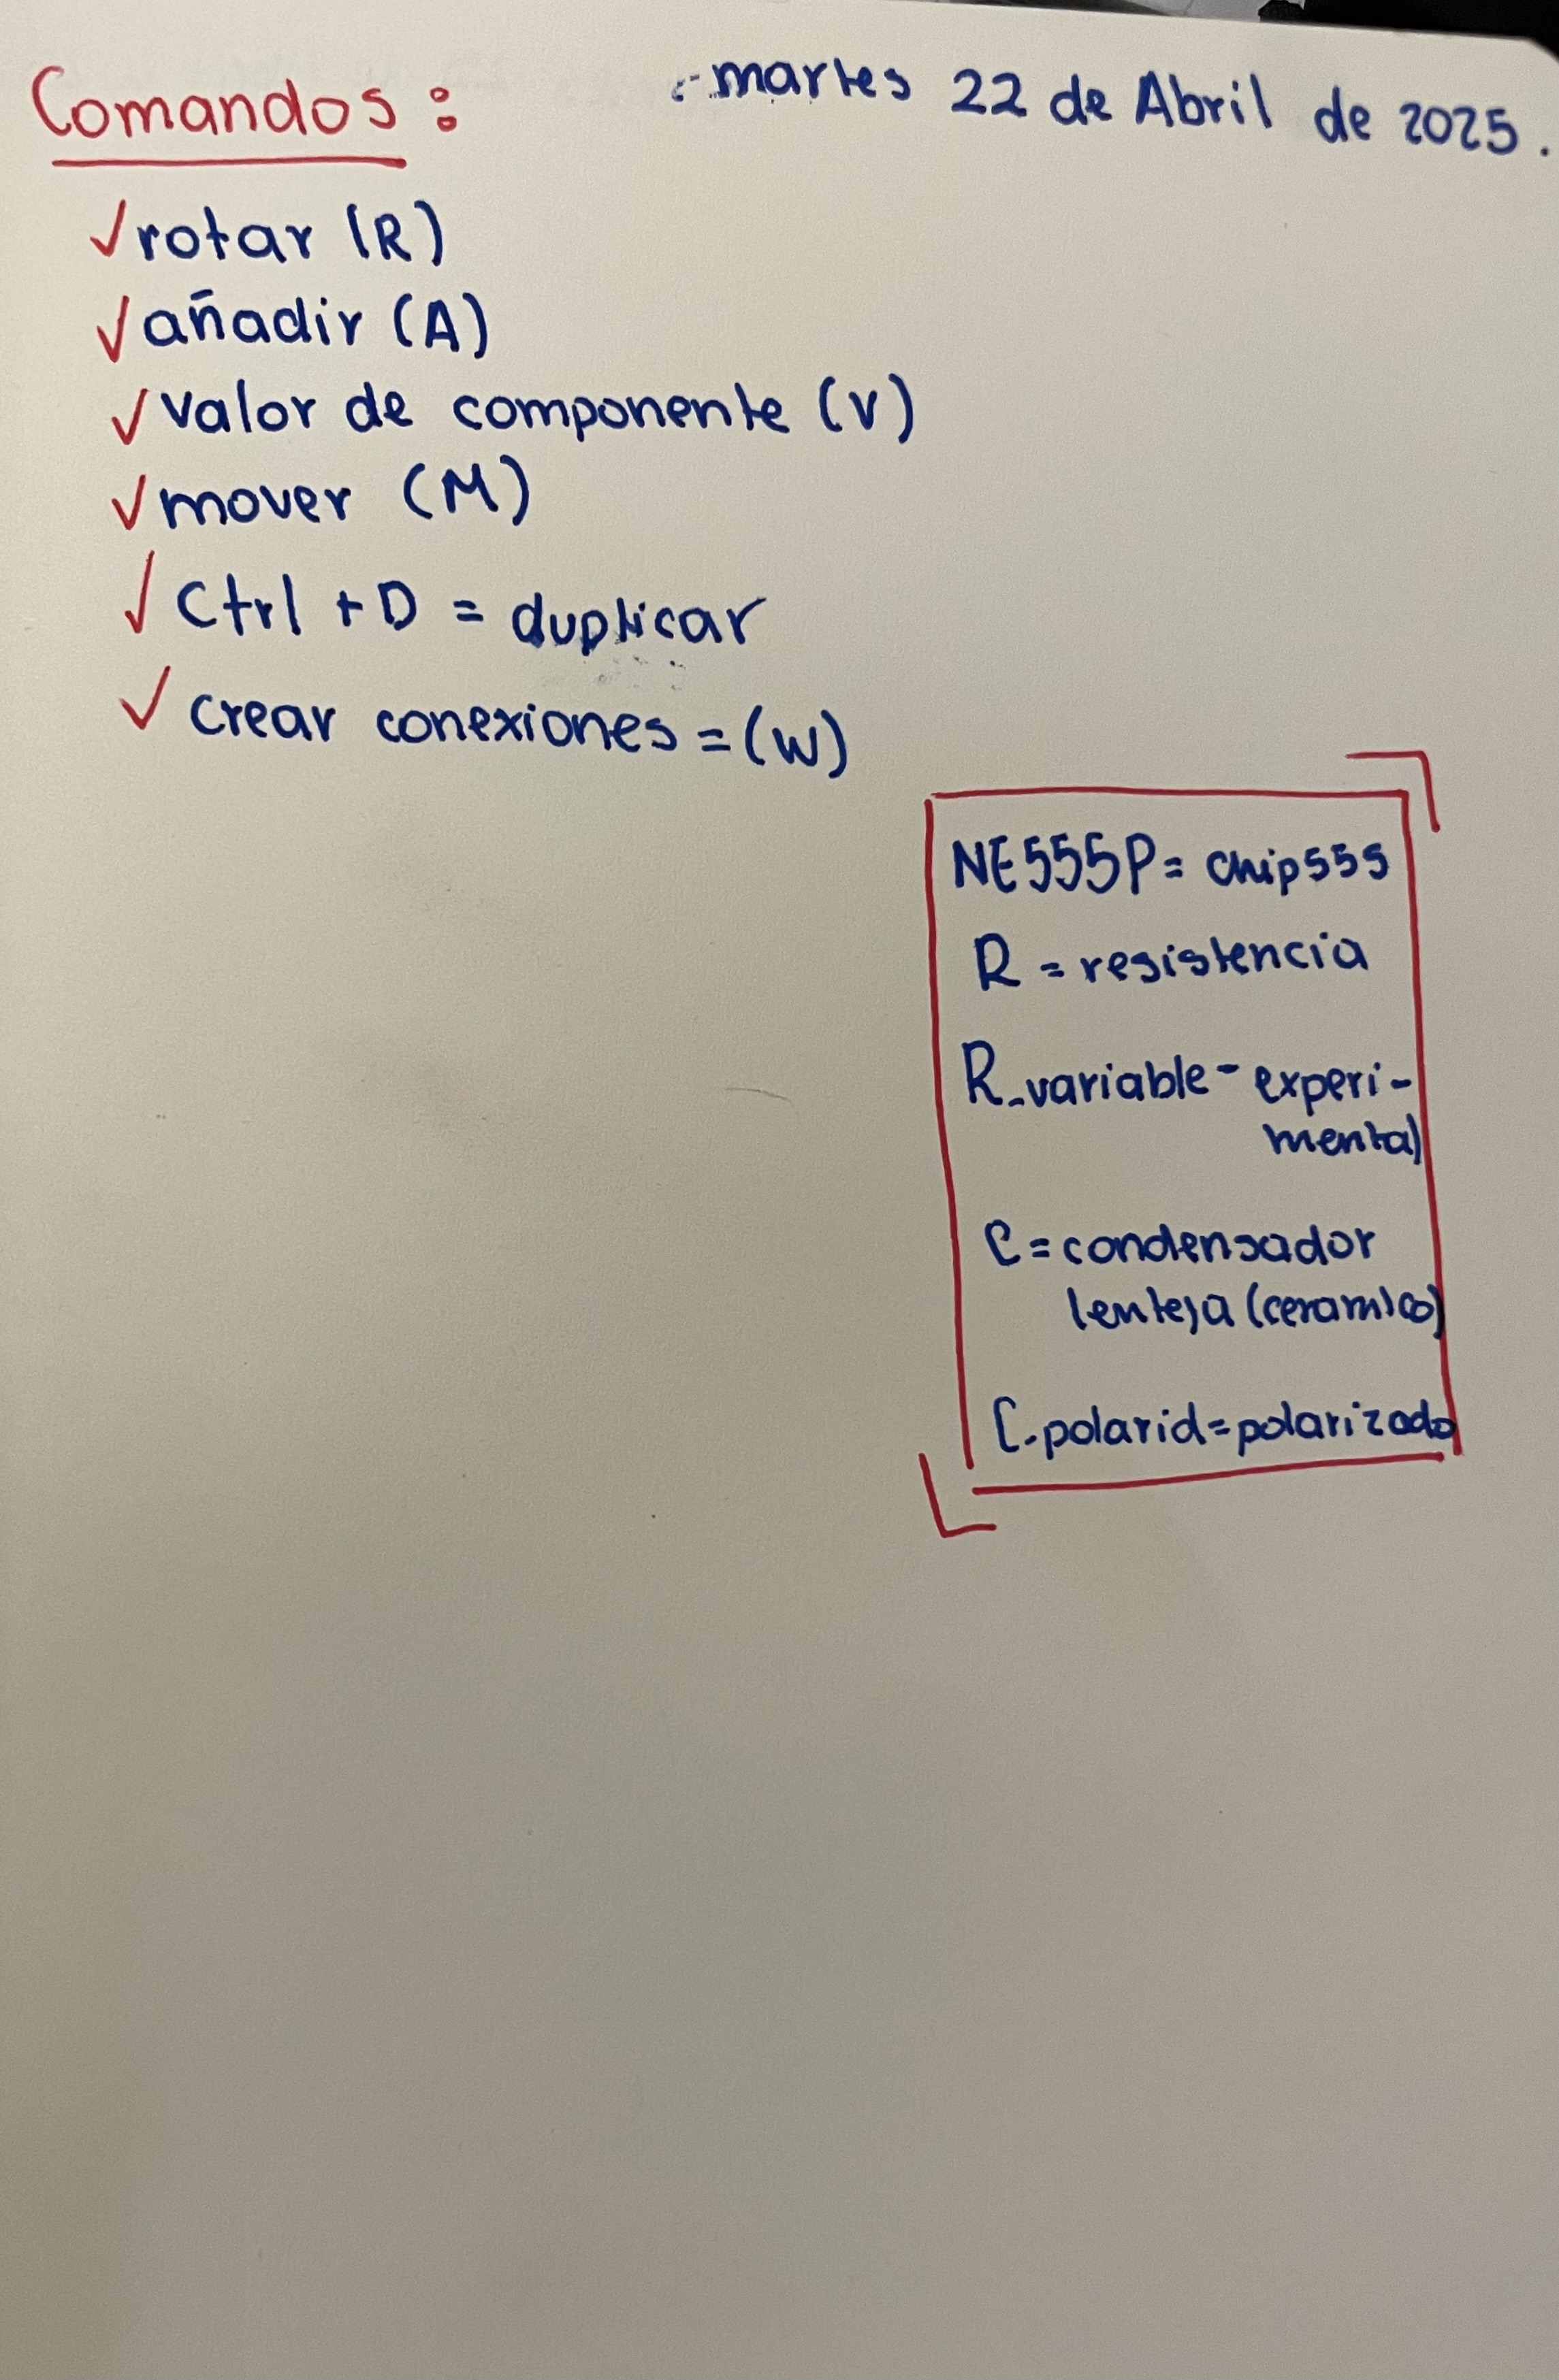 Comandos:
martes 22 de Abril de 2025.
✓ rotar (R)
✓ añadir (A)
✓ valor de componente (V)
✓ mover (M)
✓ Ctrl + D = duplicar
✓ crear conexiones = (W)
NE555P = chip555
R = resistencia
R_variable - experi-
mental
C = condensador
lenteja (ceramico)
C_polarid = polarizado